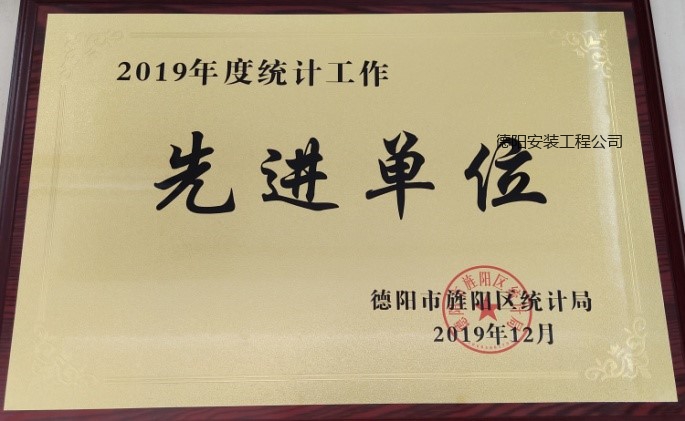 2019年度统计工作
德阳安装工程公司
先进单位
德阳市旌阳区统计局
2019年12月